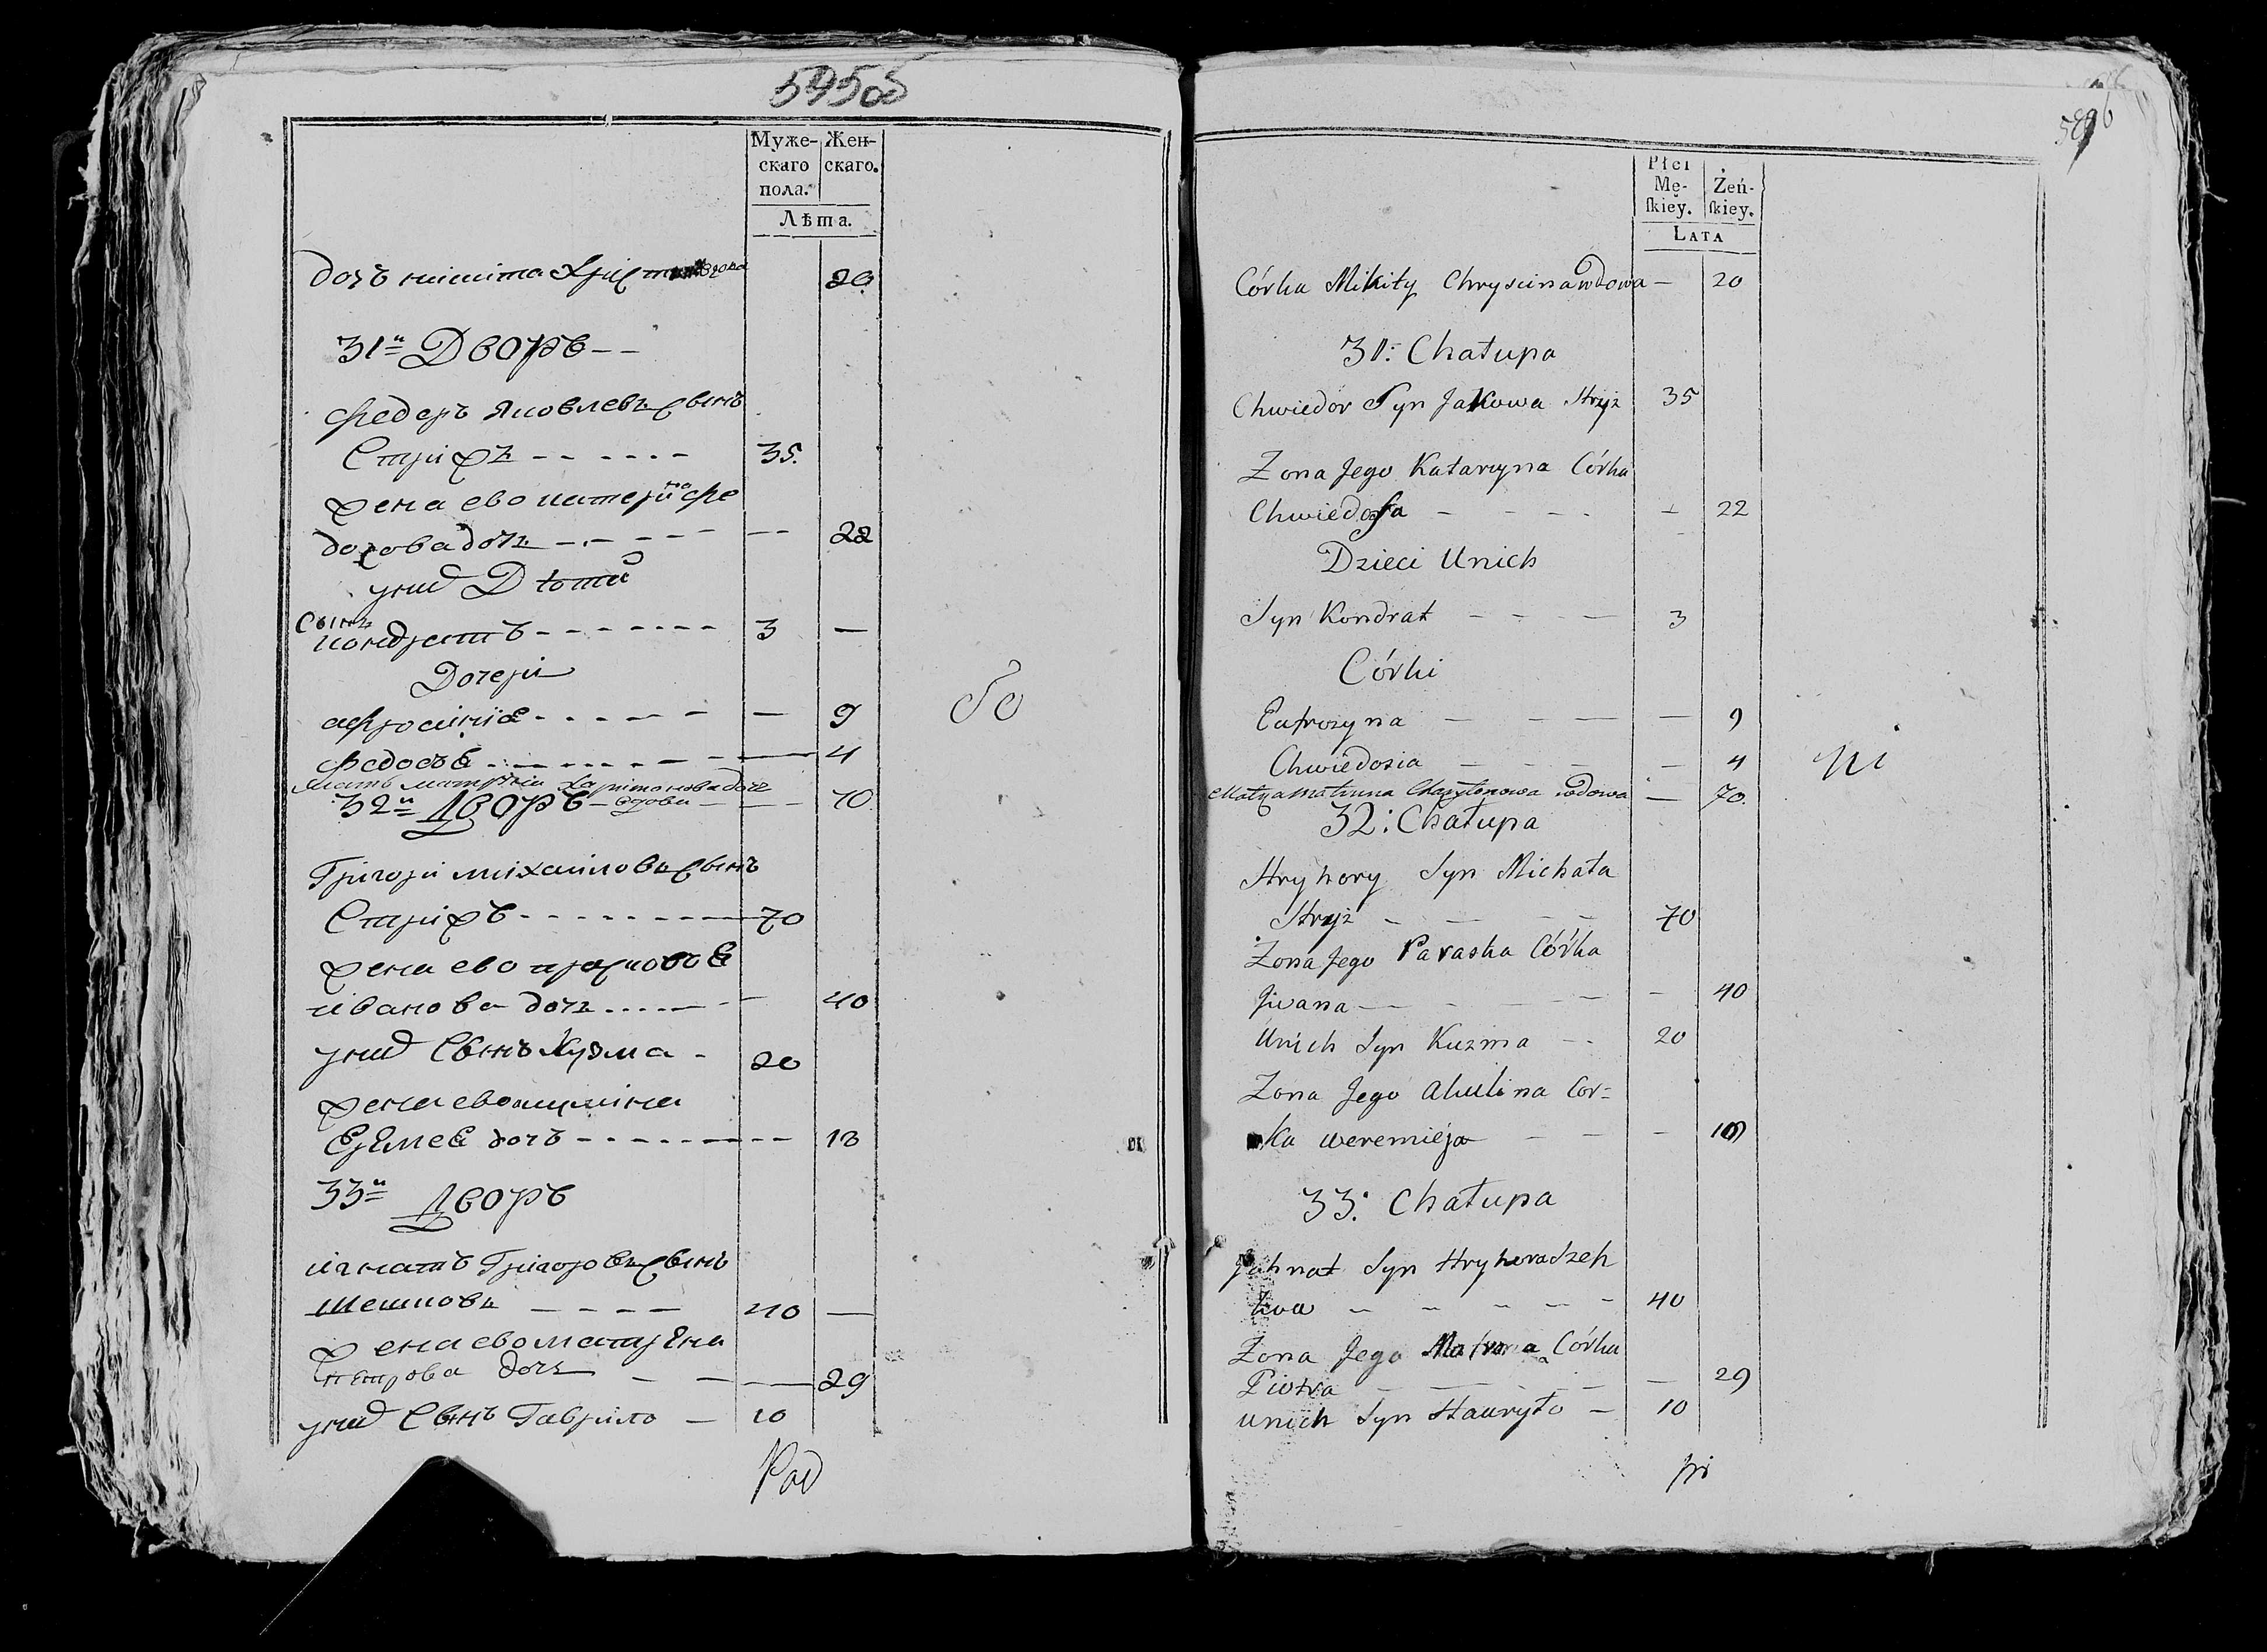 545об
Муже-
скаго
пола.
Жен-
скаго.
Лѣта.
дочь никита Христина вдова 20
31й Дворъ
Федеръ Яковлевъ Сынъ
Стрижъ 35.
жена ево катерина Фе
дорова дочь 22
у них Дѣти
Сынъ
кондратъ 3
Дочери
афросинiя 9
Федосья 4
Мать матруна Харитонова дочь
32й Дворъ вдова 70
Григори михайловъ Сынъ
Стрижъ 70
жена ево прасковья
иванова дочь 40
у них Сынъ Кузма 20
жена ево акулина
Еремея дочь 18
33й Дворъ
игнатъ Григоровъ Сынъ
40
жена ево матрена
петрова дочь 29
у них Сынъ Гаврило 10
Płci
Mę-
ſkiey.
Żeń-
ſkiey.
LATA
Córka Mikity Chryscina wdowa 20
31: Chałupa
Chwiedor Syn Jakowa Stryż 35
Zona Jego Katarzyna Córka
Chwiedora 22
Dzieci Unich
Syn Kondrat 3
Córki
Eufrozyna 9
Chwiedosia 4
Matka Matruna Charytonowa wdowa 70
32: Chałupa
Hryhory Syn Michała
Stryż 70
Zona Jego Paraska Córka
Jwana 40
Unich Syn Kuzma 20
Zona Jego Akulina Cor=
ka weremieja
33: Chałupa
Jahnat Syn Hryhora Szeh
kwa 40
Zona Jego Matrona Córka
Piotra 29
unich Syn Hauryło 10